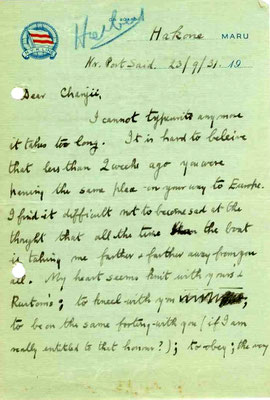 ON BOARD
Herbert
Hakone MARU
Nr. Port Said. 23/9/31. 19
Dear Chanji,
I cannot typewrite any more
it takes too long. It is hard to beleive
that less than 2 weeks ago you were
passing the same place on your way to Europe.
I find it difficult not to become sad at the
thought that all the time the boat
is taking me farther & farther away from you
all. My heart seems knit with yours &
Rustom's; to kneel with you
to be on the same footing with you (if I am
really entitled to that honour?); to obey; the very